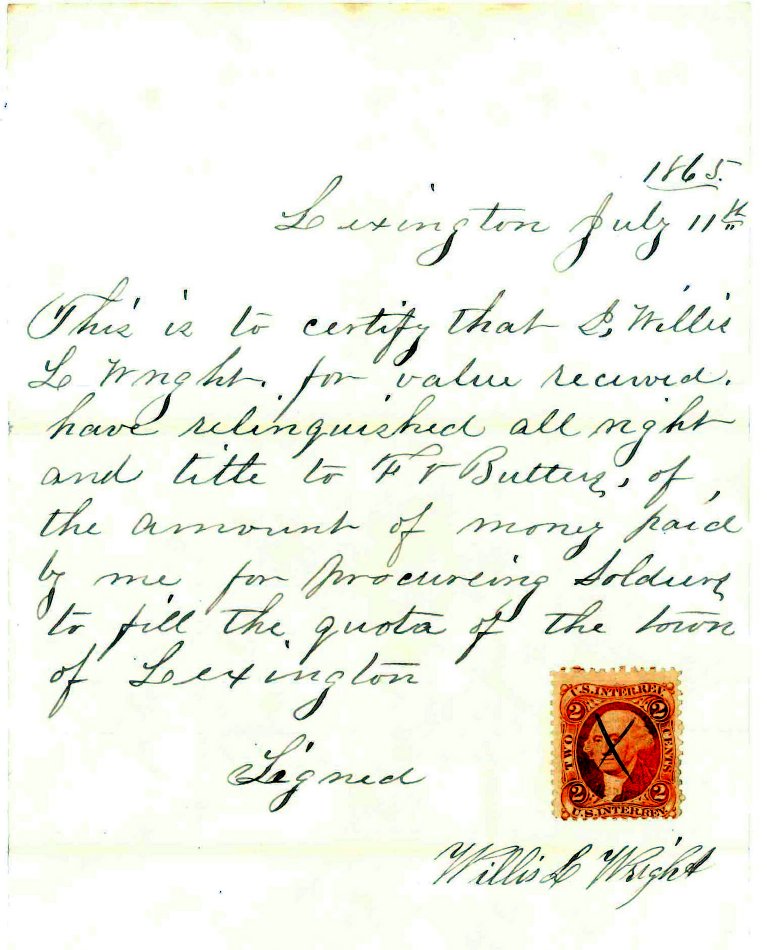 1865.
Lexington July 11th
This is to certify that I, Willis
L Wright. for value received.
have relinquished all right
and title to F V Butters, of,
the amount of money paid
by me for procureing Soldiers
to fill the quota of the town
of Lexington
Signed
U.S. INTER. REV.
2 2
TWO CENTS
2 2
U.S. INTER. REV.
Willis L Wright